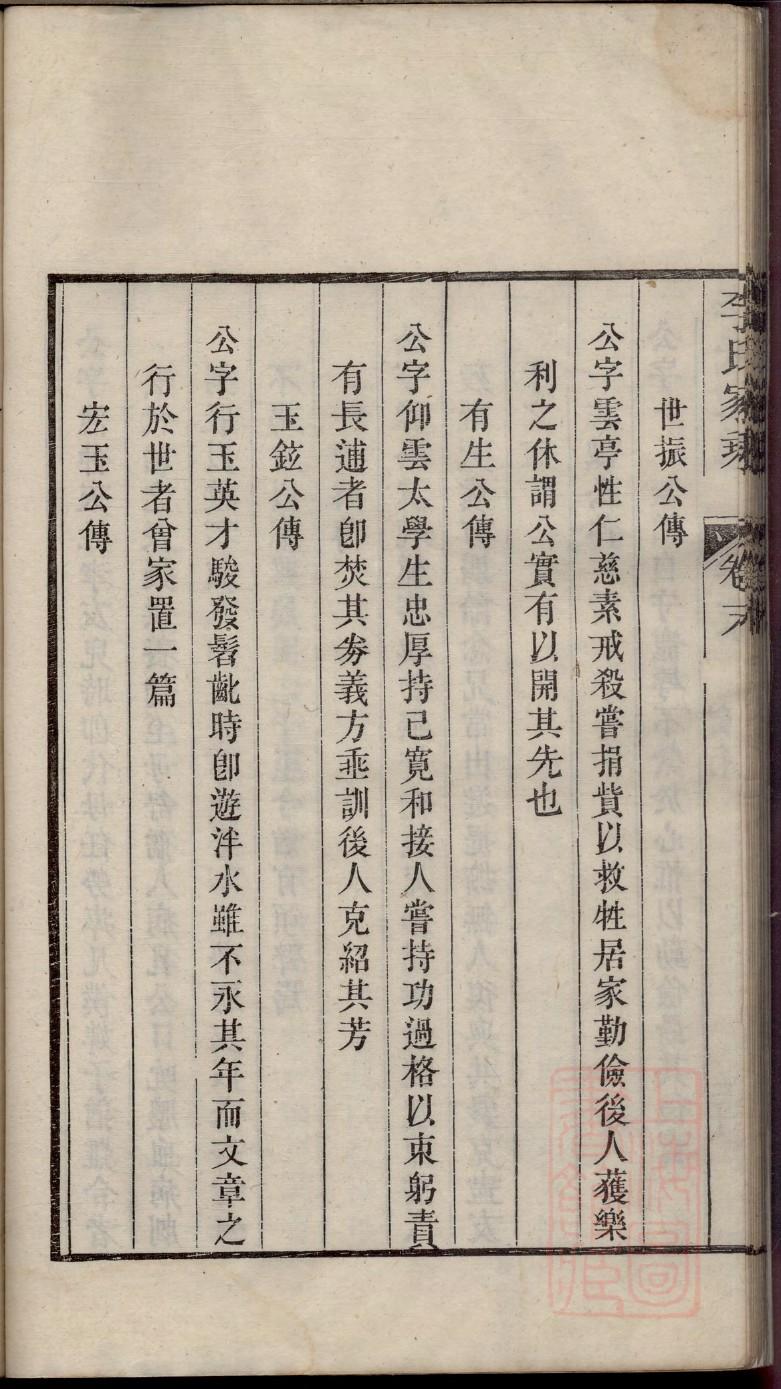 李氏家乘 卷六
世振公傳
公字雲亭性仁慈素戒殺嘗捐貲以救牲居家勤儉後人獲樂
利之休謂公實有以開其先也
有生公傳
公字仰雲太學生忠厚持己寬和接人嘗持功過格以束躬責
有長逋者卽焚其券義方垂訓後人克紹其芳
玉鉉公傳
公字行玉英才駿發髫齔時卽遊泮水雖不永其年而文章之
行於世者曾家置一篇
宏玉公傳